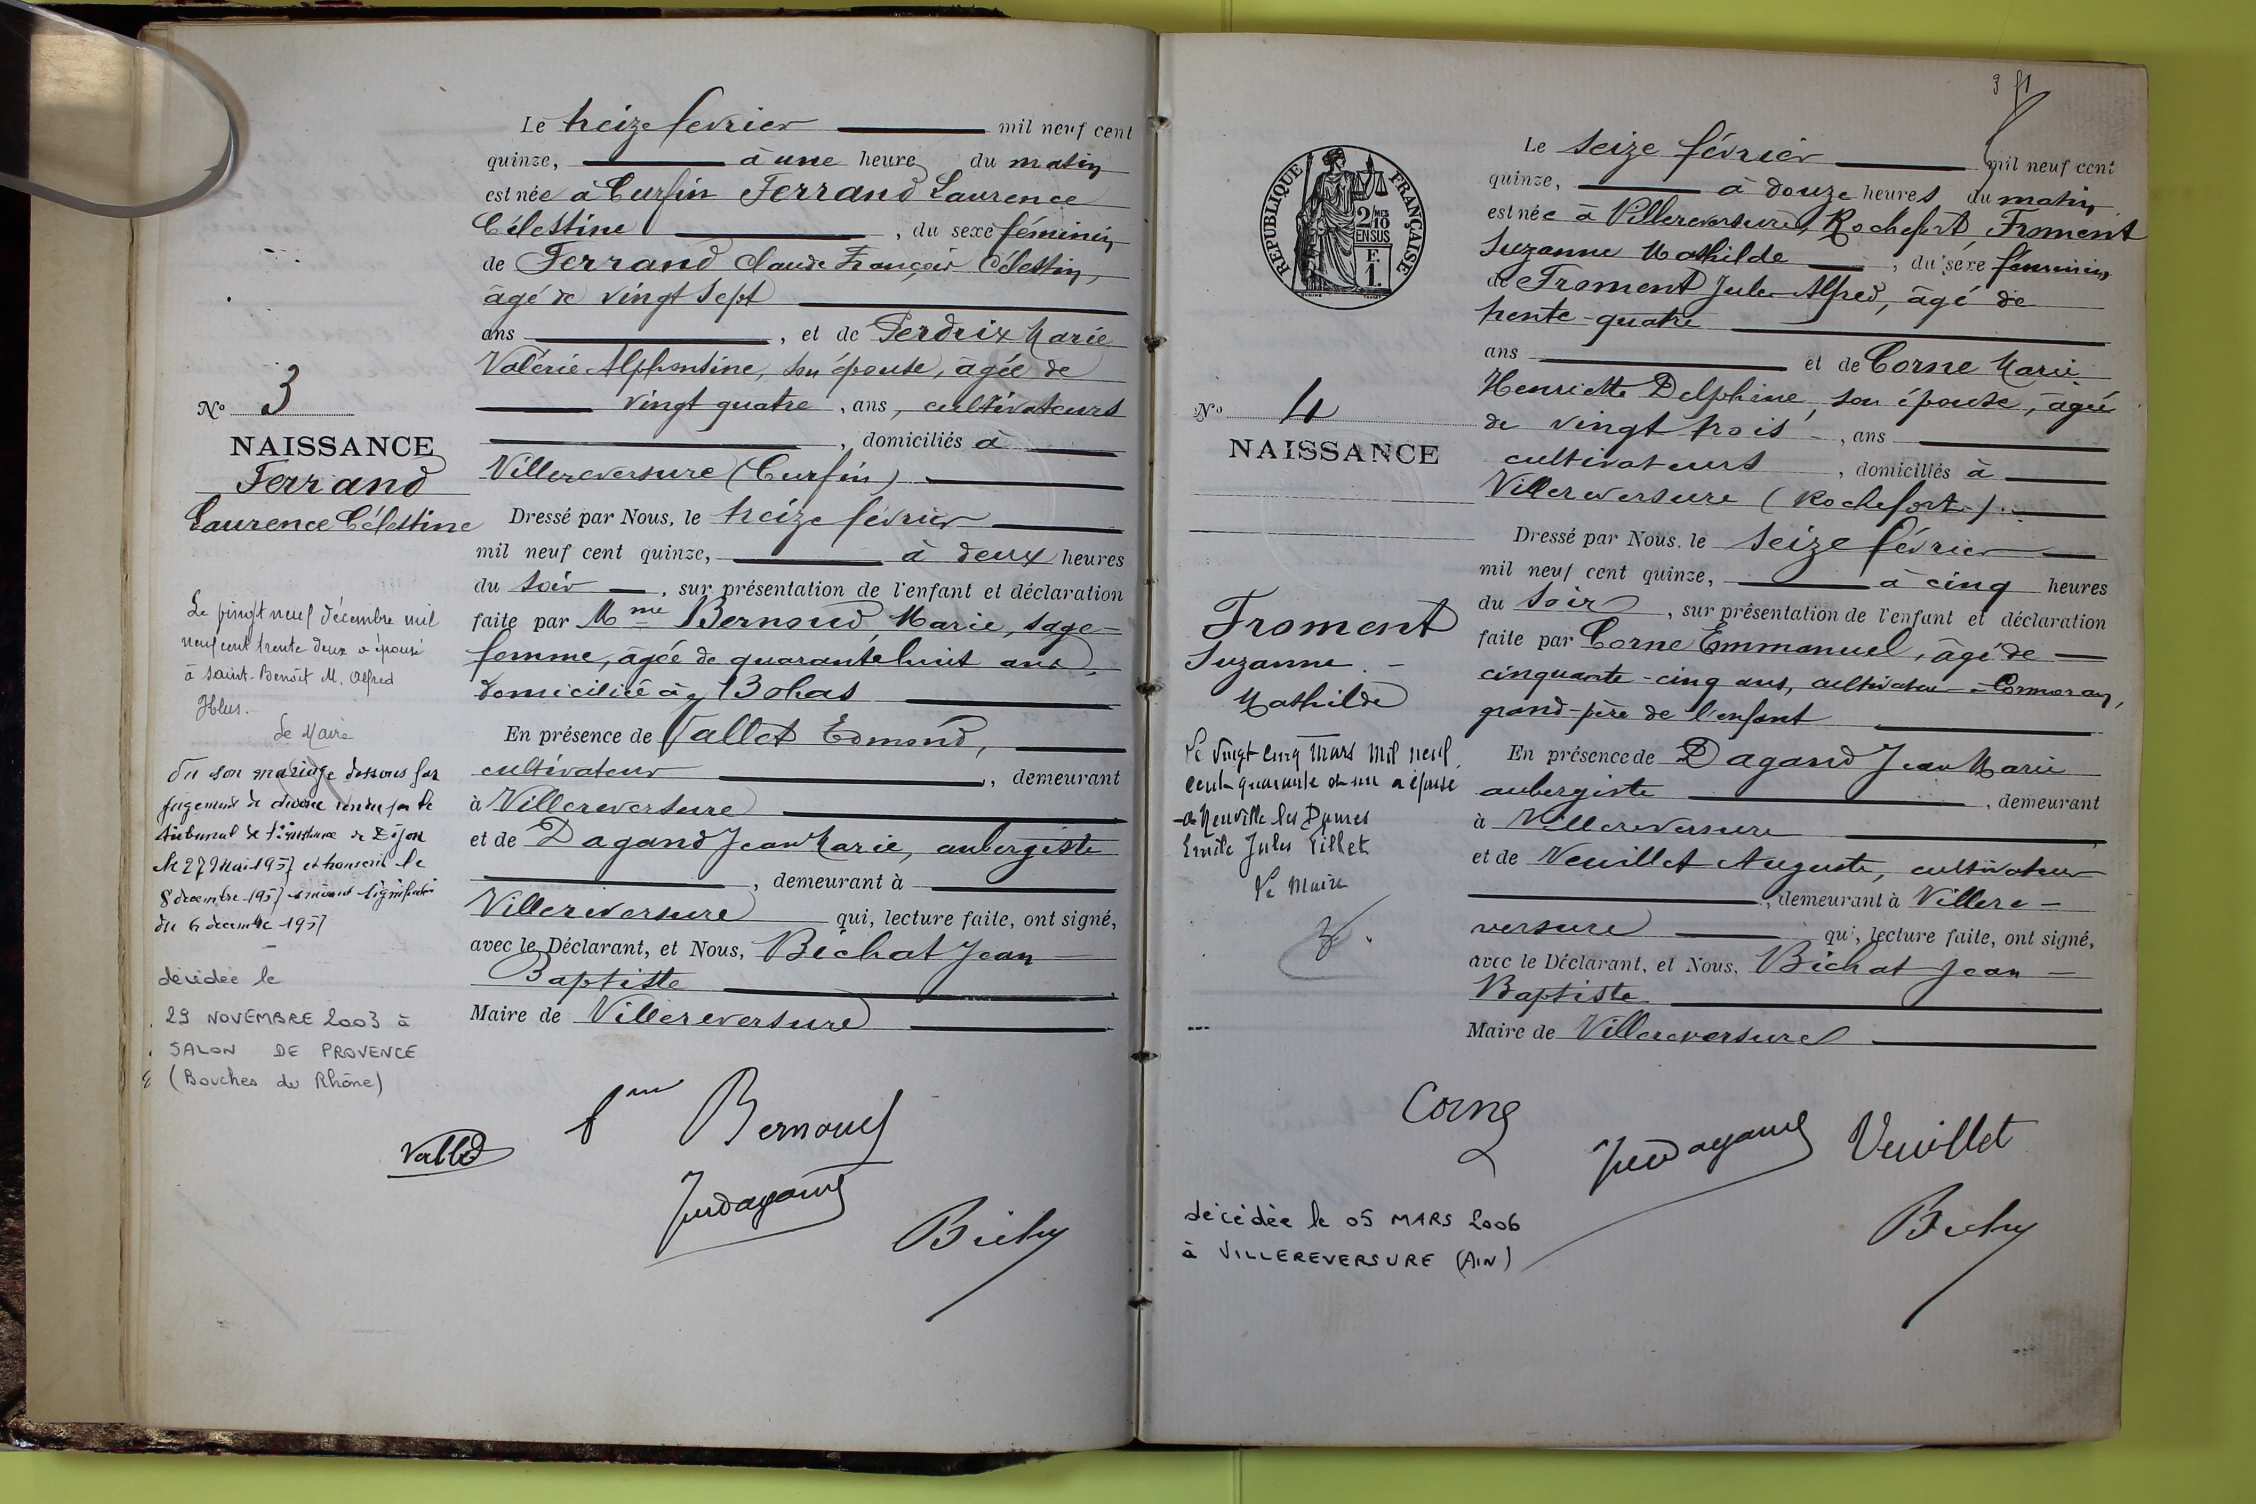 Le treize février mil neuf cent
quinze, à une heure du matin
est née à Curfin Ferrand Laurence
Célestine, du sexe féminin
de Ferrand Claude François Célestin,
âgé de vingt sept
ans, et de Perdrix Marie
Valérie Alphonsine, son épouse, âgée de
vingt quatre, ans, cultivateurs
, domiciliés à
Villereversure (Curfin)
Dressé par Nous, le treize février
mil neuf cent quinze, à deux heures
du soir, sur présentation de l'enfant et déclaration
faite par Mme Bernoud Marie, sage-
femme, âgée de quarante huit ans,
domiciliée à Bohas
En présence de Vallet Edmond,
cultivateur, demeurant
à Villereversure
et de Dagand Jean Marie, aubergiste
, demeurant à
Villereversure qui, lecture faite, ont signé,
avec le Déclarant, et Nous, Béchat Jean
Baptiste
Maire de Villereversure
No 3
NAISSANCE
Ferrand
Laurence Célestine
Le vingt neuf décembre mil
neuf cent trente deux a épousé
à Saint-Benoît M. Alfred
Le Maire
Vu son mariage dissous par
jugement de divorce rendu par le
tribunal de 1ère instance de Dijon
le 27 Mai 1957 et transcrit le
8 decembre 1957 suivant signification
du 6 decembre 1957
décédée le
29 NOVEMBRE 2003 à
SALON DE PROVENCE
(Bouches du Rhône)
Vallet
fme Bernoud
JMDagand
3
REPUBLIQUE FRANÇAISE
2/10 EN SUS
F. 1.
Le seize février mil neuf cent
quinze, à douze heures du matin
est née à Villereversure, Rochefort Froment
Suzanne Mathilde, du sexe féminin
de Froment Jules Alfred, âgé de
trente-quatre
ans et de Corne Marie
Henriette Delphine, son épouse, âgée
de vingt trois, ans
cultivateurs, domiciliés à
Villereversure (Rochefort)
Dressé par Nous, le seize février
mil neuf cent quinze, à cinq heures
du soir, sur présentation de l'enfant et déclaration
faite par Corne Emmanuel, âgé de
cinquante-cinq ans, cultivateur à Cormoran,
grand-père de l'enfant
En présence de Dagand Jean Marie
aubergiste, demeurant
à Villereversure
et de Veuillet Auguste, cultivateur
, demeurant à Villere-
versure qui, lecture faite, ont signé,
avec le Déclarant, et Nous, Béchat Jean
Baptiste
Maire de Villereversure
No 4
NAISSANCE
Froment
Suzanne
Mathilde
Le vingt cinq Mars mil neuf
cent quarante et un a épousé
à Neuville les Dames
Emile Jules Tillet
Le Maire
Corne
JMDagand
Veuillet
décédée le 05 MARS 2006
à VILLEREVERSURE (AIN)